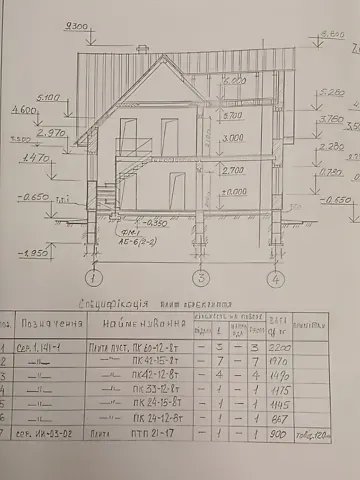 9300
8.600
6.000
5.100
5.280
4.600
5.700
3.780
2.970
3.000
2.280
1.470
2.700
0.780
-0.650
±0.000
-0.650
-0.350
ФМ-1
АБ-6(2-2)
-1.950
1 3 4
Специфікація плит перекриття
Позначення Найменування Кількість на поверх Маса од. кг Примітки
1 Сер. 1.141-1 Плита пуст. ПК 60-12-8т — 3 — 3 2200
2 —"— —"— ПК 42-15-8т — 7 — 7 1970
3 —"— —"— ПК 42-12-8т — 4 — 4 1490
—"— —"— ПК 33-12-8т — 1 — 1 1175
5 —"— —"— ПК 24-15-8т — 1 — 1 1145
6 —"— —"— ПК 24-12-8т — 1 — 1
7 сер. ИИ-03-02 Плита ПТП 21-17 — 1 — 1 900 товщ.120мм